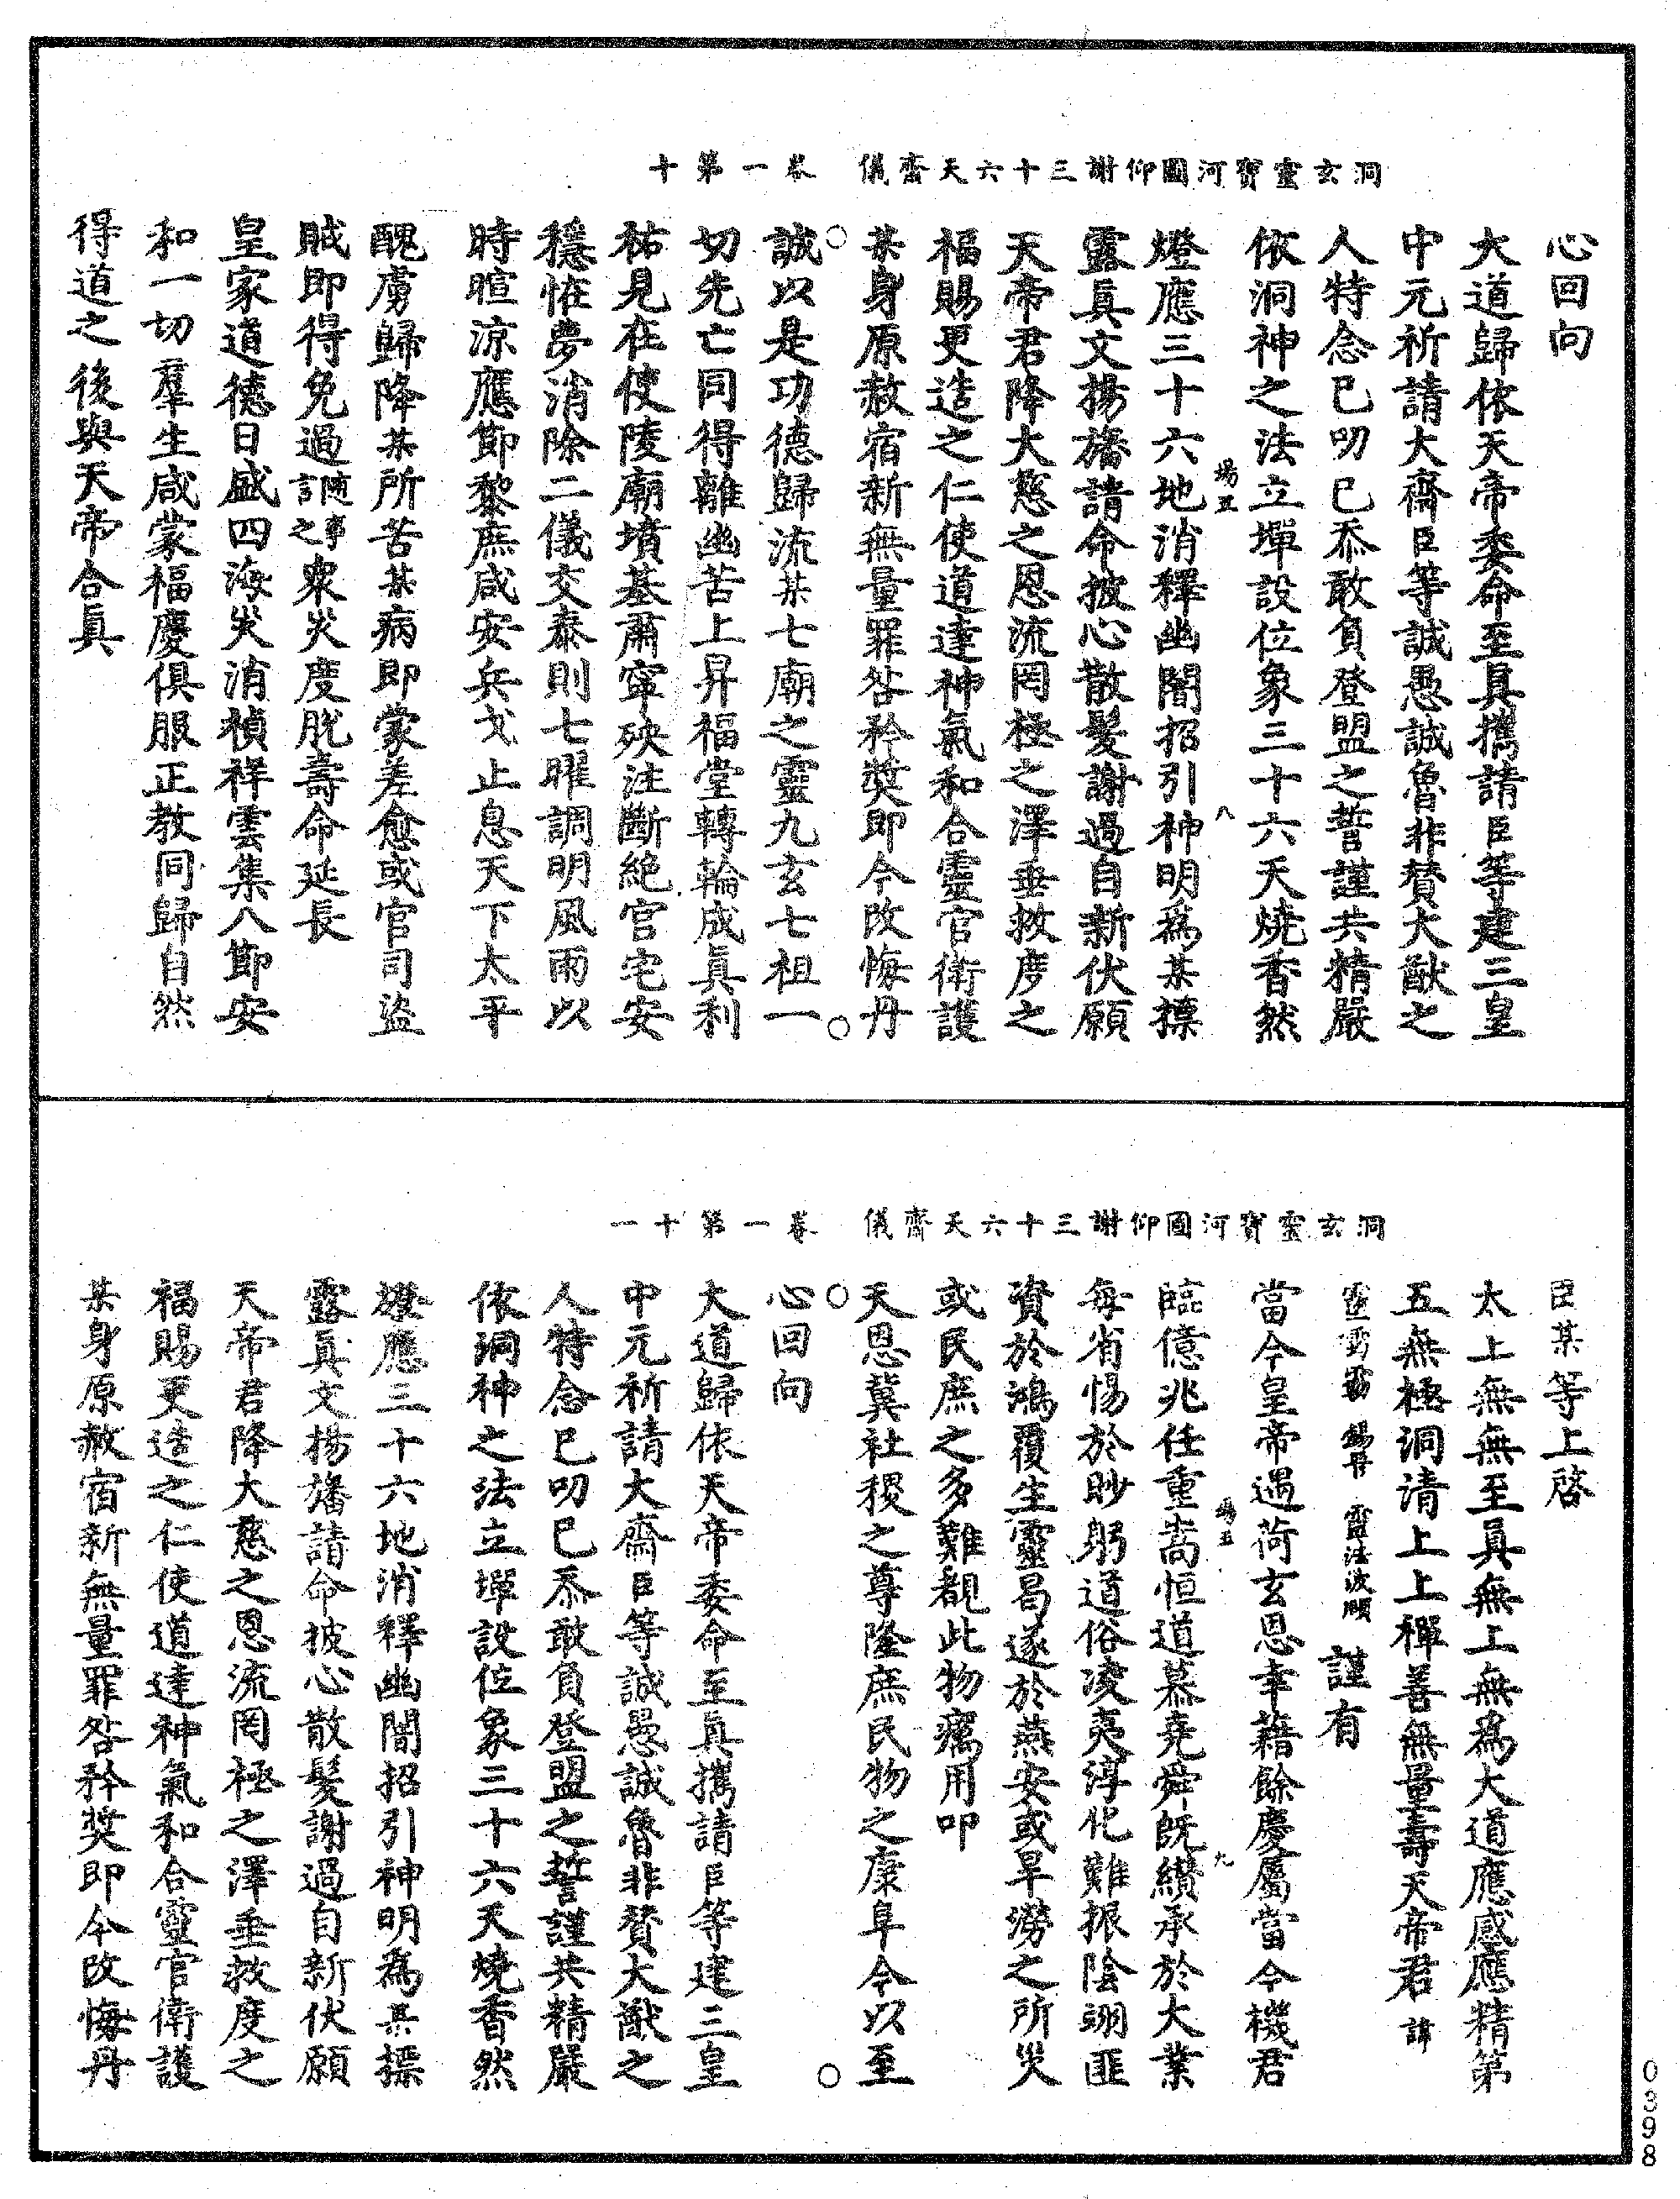 洞玄靈寶河圖仰謝三十六天齋儀　卷一第十
心回向
大道歸依天帝委命至真攜請臣等建三皇
中元祈請大齋臣等誠愚誠魯非贊大猷之
人特念已叨已忝敢負登盟之誓謹共精嚴
依洞神之法立墠設位象三十六天燒香然
場五　八
燈應三十六地消釋幽闇招引神明為某摽
露真文揚旛請命披心散髮謝過自新伏願
天帝君降大慈之恩流罔極之澤垂救度之
福賜更造之仁使道達神氣和合靈官衛護
某身原赦宿新無量罪咎矜奬即今改悔丹
誠以是功德歸流某七廟之靈九玄七祖一
切先亡同得離幽苦上昇福堂轉輪成真利
祐見在使陵廟墳基肅寧殃注斷絕宮宅安
穩恠夢消除二儀交泰則七曜調明風雨以
時暄涼應節黎庶咸安兵戈止息天下太平
醜虜歸降某所苦某病即蒙差愈或官司盜
賊即得免過隨事言之衆灾度脫壽命延長
皇家道德日盛四海灾消禎祥雲集八節安
和一切羣生咸蒙福慶俱服正教同歸自然
得道之後與天帝合真
洞玄靈寶河圖仰謝三十六天齋儀　卷一第十一
臣某等上啓
太上無無至真無上無為大道應感應精第
五無極洞清上上禪善無量壽天帝君諱
謹有
當今皇帝遇荷玄恩幸藉餘慶屬當今機君
場五　九
臨億兆任重嵩恒道慕堯舜旣纘承於大業
每省惕於眇躬道俗凌夷淳化難振陰翊匪
資於鴻覆生靈曷遂於燕安或旱澇之所災
或民庶之多難覩此物癘用叩
天恩冀社稷之尊隆庶民物之康阜今以至
心回向
大道歸依天帝委命至真攜請臣等建三皇
中元祈請大齋臣等誠愚誠魯非贊大猷之
人特念已叨已忝敢負登盟之誓謹共精嚴
依洞神之法立墠設位象三十六天燒香然
燈應三十六地消釋幽闇招引神明為某摽
露真文揚旛請命披心散髮謝過自新伏願
天帝君降大慈之恩流罔極之澤垂救度之
福賜更造之仁使道達神氣和合靈官衛護
某身原赦宿新無量罪咎矜奬即今改悔丹
0398